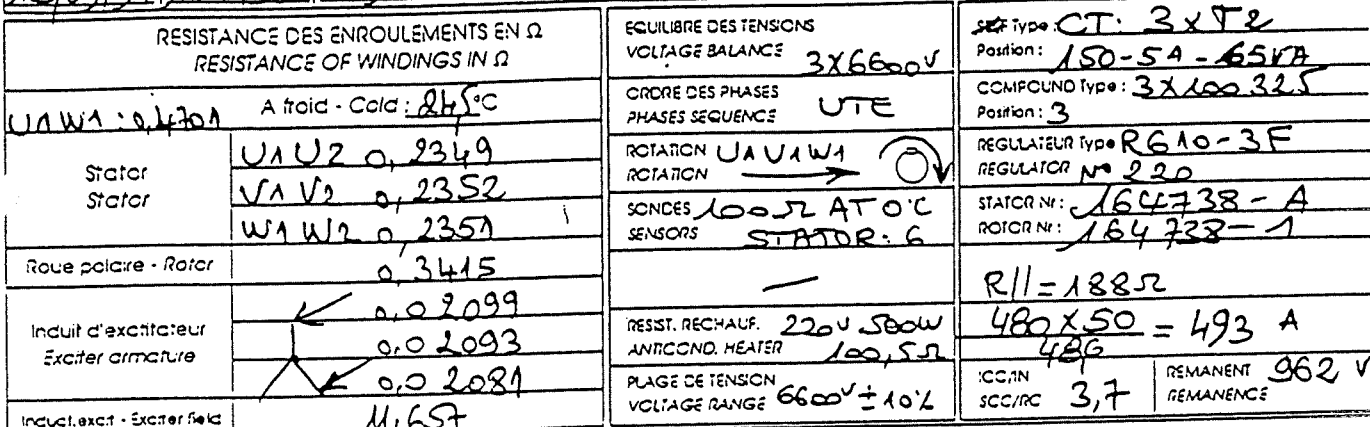 RESISTANCE DES ENROULEMENTS EN Ω
RESISTANCE OF WINDINGS IN Ω
U1W1 : 0,4701
A froid - Cold : 24,5°C
Stator
Stator
U1 U2 0,2349
V1 V2 0,2352
W1 W2 0,2351
Roue polaire - Rotor 0,3415
Induit d'excitateur
Exciter armature
0,02099
0,02093
0,02081
Induct. excit - Exciter field 11,657
EQUILIBRE DES TENSIONS
VOLTAGE BALANCE 3X6600V
ORDRE DES PHASES
PHASES SEQUENCE UTE
ROTATION U1V1W1
ROTATION
SONDES 100Ω AT 0°C
SENSORS STATOR: 6
—
RESIST. RECHAUF. 220V 500W
ANTICOND. HEATER 100,5Ω
PLAGE DE TENSION
VOLTAGE RANGE 6600V ± 10%
Type : CT: 3xT2
Position : 150-5A-65VA
COMPOUND Type : 3X100.325
Position : 3
REGULATEUR Type R610-3F
REGULATOR N° 220
STATOR Nr : 164738 - A
ROTOR Nr : 164738 - 1
R// = 188Ω
480X50 = 493 A
ICC/IN
SCC/RC 3,7
REMANENT 962 V
REMANENCE